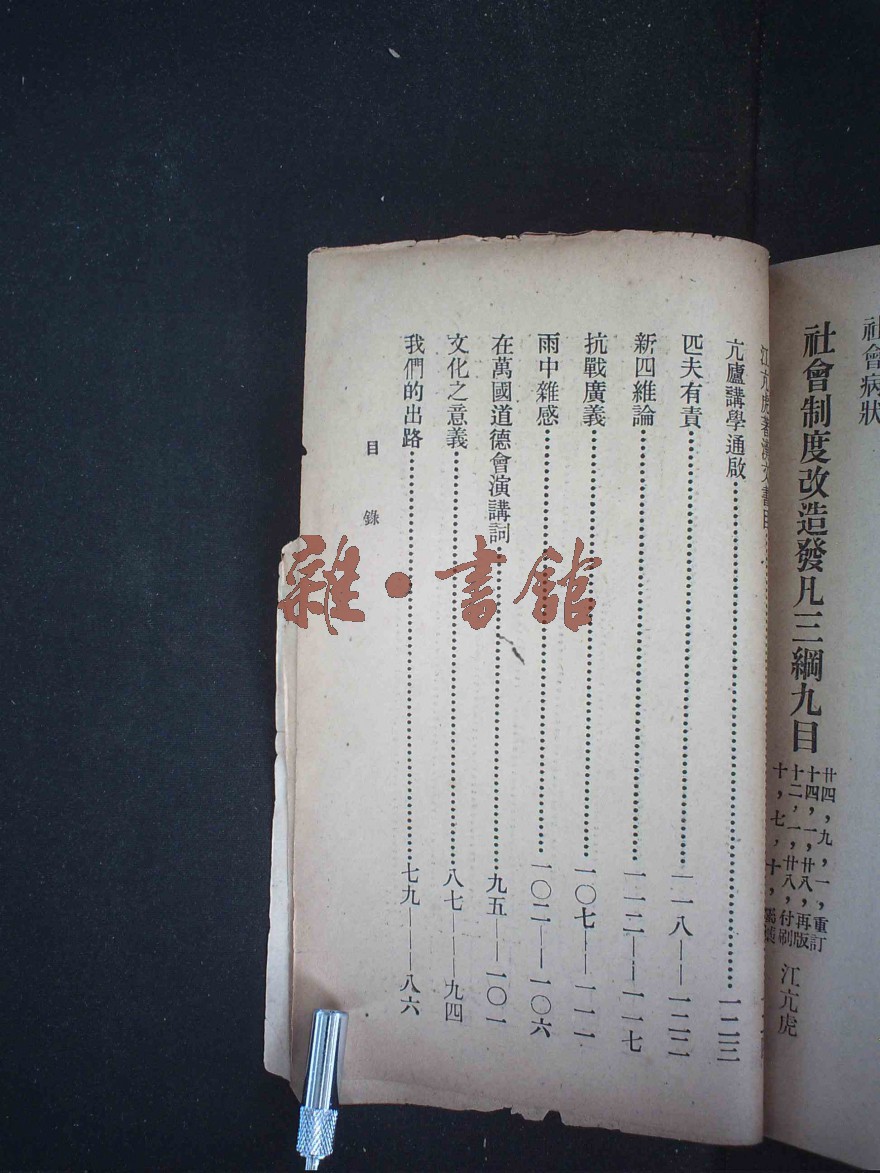 目錄
我們的出路⋯⋯七九——八六
文化之意義⋯⋯八七——九四
在萬國道德會演講詞⋯⋯九五——一〇一
雨中雜感⋯⋯一〇二——一〇六
抗戰廣義⋯⋯一〇七——一一一
新四維論⋯⋯一一二——一一七
匹夫有責⋯⋯一一八——一二二
亢廬講學通啟⋯⋯一二三
江亢虎著漢文書目
十，七，十，
十二，一，廿八，付刷
十四，一，廿八，再版
廿四，九，一，重訂
社會制度改造發凡三綱九目
江亢虎
社會病狀
雜·書館